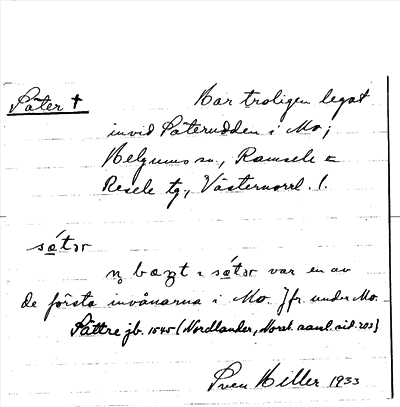 Säter † Har troligen legat
invid Säterudden i Mo;
Helgums sn, Ramsele =
Resele tg, Västernorrl. l.
sǿtər
n̥ bœȥt ı sǿtər var en av
de första invånarna i Mo. Jfr. under Mo.
Sättre jb. 1545 (Nordlander, Norrl. saml. sid. 202)
Sven Hiller 1933